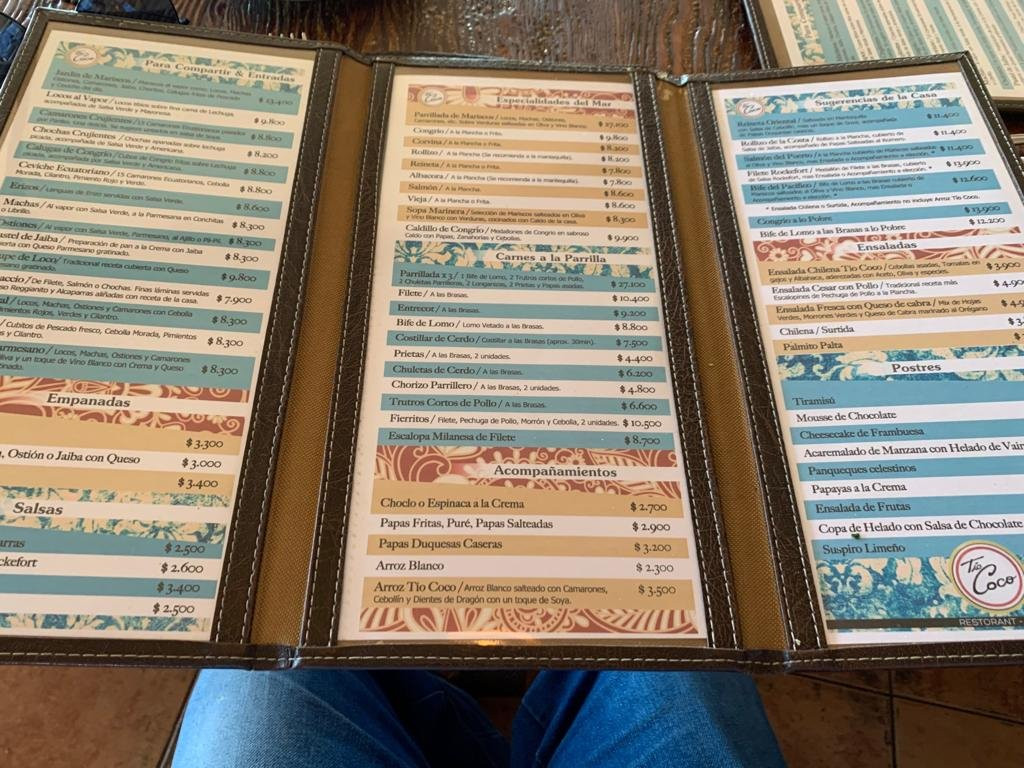 Tío Coco
Para Compartir & Entradas
Jardín de Mariscos / Mariscos al vapor: Locos, Machas,
$ 13.400
Locos al Vapor / Locos tibios sobre fina cama de Lechuga,
acompañados de Salsa Verde y Mayonesa.
$ 9.800
Camarones Crujientes / 15 Camarones Ecuatorianos
$ 8.800
Chochas Crujientes / Chochas apanadas sobre lechuga
picada, acompañadas de Salsa Verde y Americana.
$ 8.200
Calugas de Congrio / Cubos de Congrio fritos sobre Lechuga
acompañada por Salsa Verde y Americana.
$ 8.800
Ceviche Ecuatoriano / 15 Camarones Ecuatorianos, Cebolla
Morada, Cilantro, Pimiento Rojo y Verde.
$ 8.800
Erizos / Lenguas de Erizo servidas con Salsa Verde.
$ 8.600
Machas / Al vapor con Salsa Verde, a la Parmesana en Conchitas
o Librillo.
$ 8.300
Ostiones / Al vapor con Salsa Verde, Parmesano, al Ajillo o Pil-Pil.
$ 8.300
Pastel de Jaiba / Preparación de pan a la Crema con Jaiba
con Queso Parmesano gratinado.
$ 8.300
de Loco / Tradicional receta cubierta con Queso
Parmesano gratinado.
$ 9.800
/ De Filete, Salmón o Chochas. Finas láminas servidas
Reggianito y Alcaparras aliñadas con receta de la casa.
$ 7.900
/ Locos, Machas, Ostiones y Camarones con Cebolla
Pimientos Rojos, Verdes y Cilantro.
$ 8.300
/ Cubitos de Pescado fresco, Cebolla Morada, Pimientos
y Cilantro.
$ 8.300
/ Locos, Machas, Ostiones y Camarones
y un toque de Vino Blanco con Crema y Queso
$ 8.300
Empanadas
$ 3.300
, Ostión o Jaiba con Queso $ 3.000
$ 3.400
Salsas
$ 2.500
$ 2.600
$ 3.400
$ 2.500
Tío Coco
Especialidades del Mar
Parrillada de Mariscos / Locos, Machas, Ostiones,
Camarones, etc. Sobre Verduras salteadas en Oliva y Vino Blanco.
$ 27.100
Congrio / A la Plancha o Frito. $ 9.800
Corvina / A la Plancha o Frita. $ 8.200
Rollizo / A la Plancha (Se recomienda a la mantequilla). $ 8.200
Reineta / A la Plancha o Frita. $ 7.800
Albacora / A la Plancha (Se recomienda a la mantequilla). $ 7.800
Salmón / A la Plancha. $ 8.600
Vieja / A la Plancha o Frita. $ 8.600
Sopa Marinera / Selección de Mariscos salteados en Oliva
y Vino Blanco con Verduras, cocinados con Caldo de la casa.
$ 8.300
Caldillo de Congrio / Medallones de Congrio en sabroso
Caldo con Papas, Zanahorias y Cebolles.
$ 9.900
Carnes a la Parrilla
Parrillada x 3 / 1 Bife de Lomo, 2 Trutros cortos de Pollo,
2 Chuletas Parrilleras, 2 Longanizas, 2 Prietas y Papas asadas.
$ 27.100
Filete / A las Brasas. $ 10.400
Entrecot / A las Brasas. $ 9.200
Bife de Lomo / Lomo Vetado a las Brasas. $ 8.800
Costillar de Cerdo / Costillar a las Brasas (aprox. 30min). $ 7.500
Prietas / A las Brasas, 2 unidades. $ 4.400
Chuletas de Cerdo / A las Brasas. $ 6.200
Chorizo Parrillero / A las Brasas, 2 unidades. $ 4.800
Trutros Cortos de Pollo / A las Brasas. $ 6.600
Fierritos / Filete, Pechuga de Pollo, Morrón y Cebolla, 2 unidades. $ 10.500
Escalopa Milanesa de Filete $ 8.700
Acompañamientos
Choclo o Espinaca a la Crema $ 2.700
Papas Fritas, Puré, Papas Salteadas $ 2.900
Papas Duquesas Caseras $ 3.200
Arroz Blanco $ 2.300
Arroz Tío Coco / Arroz Blanco salteado con Camarones,
Cebollín y Dientes de Dragón con un toque de Soya.
$ 3.500
Tío Coco
Sugerencias de la Casa
Reineta Oriental / Salteada en Mantequilla
con Salsa de Cebollín, mas un toque de Soya, acompañada
$ 11.400
Rollizo de la Costa / Rollizo a la Plancha, cubierto de
Salsa de Jaivas, acompañado de Papas Salteadas al Romero.
$ 11.400
Salmón del Puerto / A la Plancha cubierto de Mariscos salteados
al Oliva y Vino Blanco, mas Ensalada o Acompañamiento a elección. *
$ 11.400
Filete Rockefort / Medallón de Filete a las Brasas, cubierto
de Salsa Rockefort, mas Ensalada o Acompañamiento a elección. *
$ 13.900
Bife del Pacífico / Bife de Lomo a las Brasas cubierto
de Mariscos salteados al Oliva y Vino Blanco, mas Ensalada o
Acompañamiento a elección. *
$ 12.600
* Ensalada Chilena o Surtida, Acompañamiento no incluye Arroz Tío Coco.
Congrio a lo Pobre $ 13.900
Bife de Lomo a las Brasas a lo Pobre $ 12.200
Ensaladas
Ensalada Chilena Tío Coco / Cebollas asadas, Tomates en
gajos y Albahaca, aderezadas con Aceto, Oliva y especies.
$ 3.900
Ensalada Cesar con Pollo / Tradicional receta más
Escalopines de Pechuga de Pollo a la Plancha.
$ 4.90
Ensalada Fresca con Queso de cabra / Mix de Hojas
Verdes, Morrones Verdes y Queso de Cabra marinado al Orégano
Chilena / Surtida
Palmito Palta
Postres
Tiramisú
Mousse de Chocolate
Cheesecake de Frambuesa
Acaramelado de Manzana con Helado de Vain
Panqueques celestinos
Papayas a la Crema
Ensalada de Frutas
Copa de Helado con Salsa de Chocolate
Suspiro Limeño
Tío Coco
RESTORANT -